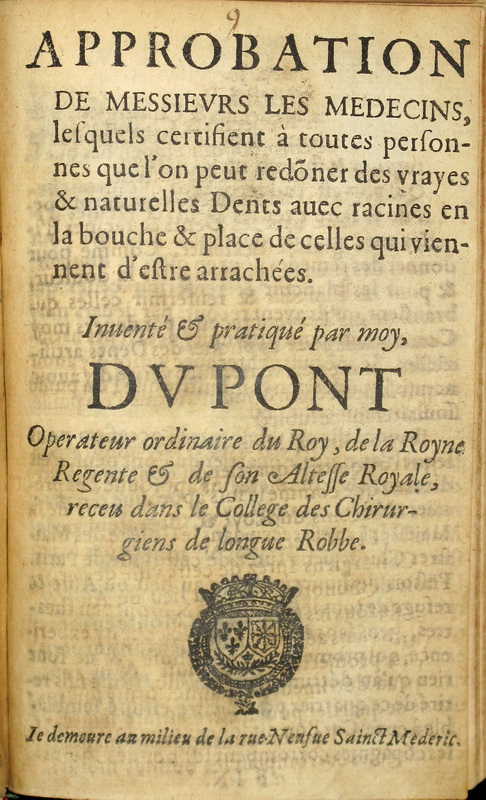 9
APPROBATION
DE MESSIEVRS LES MEDECINS,
leſquels certifient à toutes perſon-
nes que l'on peut redõner des vrayes
& naturelles Dents auec racines en
la bouche & place de celles qui vien-
nent d'eſtre arrachées.
Inuenté & pratiqué par moy,
DVPONT
Operateur ordinaire du Roy, de la Royne
Regente & de ſon Alteſſe Royale,
receu dans le College des Chirur-
giens de longue Robbe.
Ie demeure au milieu de la rue Neufue Sainct Mederic.